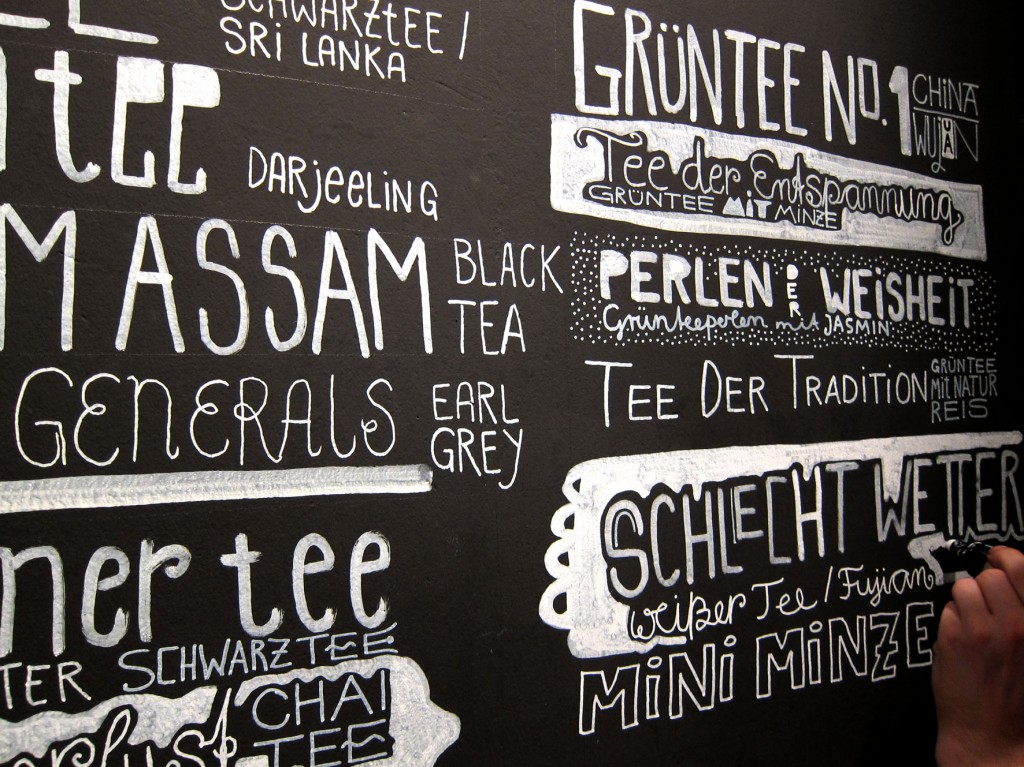 SCHWARZtEE /
SRi LANKA
tee
DARjeeLiNG
M ASSAM BLACK TEA
GENERALS EARL GREY
ner tee
TER SCHWARZTEE
CHAI
TEE
GRÜNTEE NO. 1 CHiNA WUjÜAN
Tee der Entspannung
GRÜNTEE MiT MiNZE
PERLEN DER WEiSHEiT
Grünteeperlen mit JASMiN
TEE DER TRADiTiON GRÜNTEE Mit NATUR REIS
SCHLECHT WETTER
weißer Tee / Fujian
MiNi MiNZE